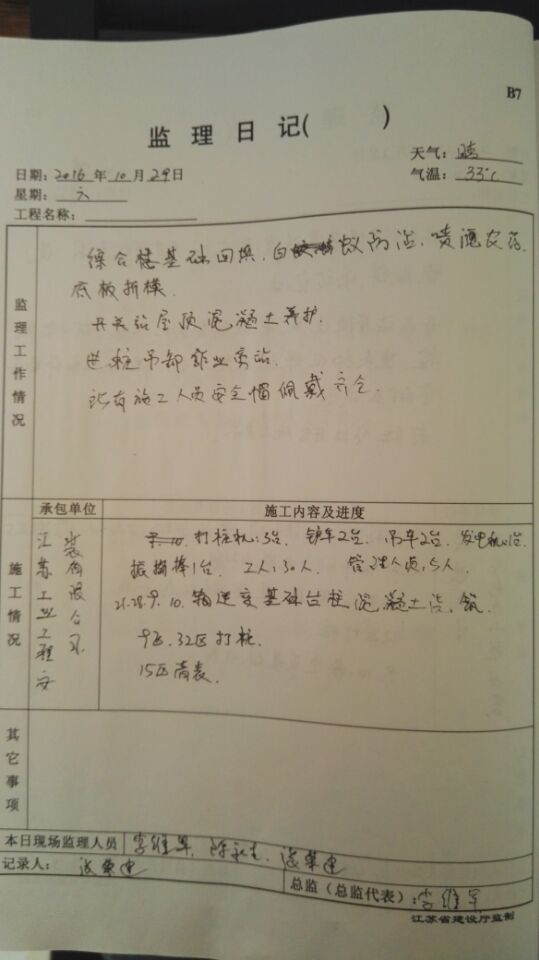 B7
监理日记( )
天气：晴
日期：2016年10月29日
气温：33℃
星期：六
工程名称：
监理工作情况
综合楼基础回填，白蚁防治，喷洒农药，
底板拆模
开关站屋顶混凝土养护
进桩吊卸作业旁站
所有施工人员安全帽佩戴齐全
承包单位
施工内容及进度
施工情况
江苏工业工程安
装有限公司
打桩机：3台，铲车2台，吊车2台，发电机1台
振捣棒1台，工人：30人，管理人员：5人
21.28.9.10.箱逆变基础台柱混凝土浇筑
9区，32区打桩
15区清表
其它事项
本日现场监理人员 李维军，
记录人：
总监（总监代表）：李维军
江苏省建设厅监制